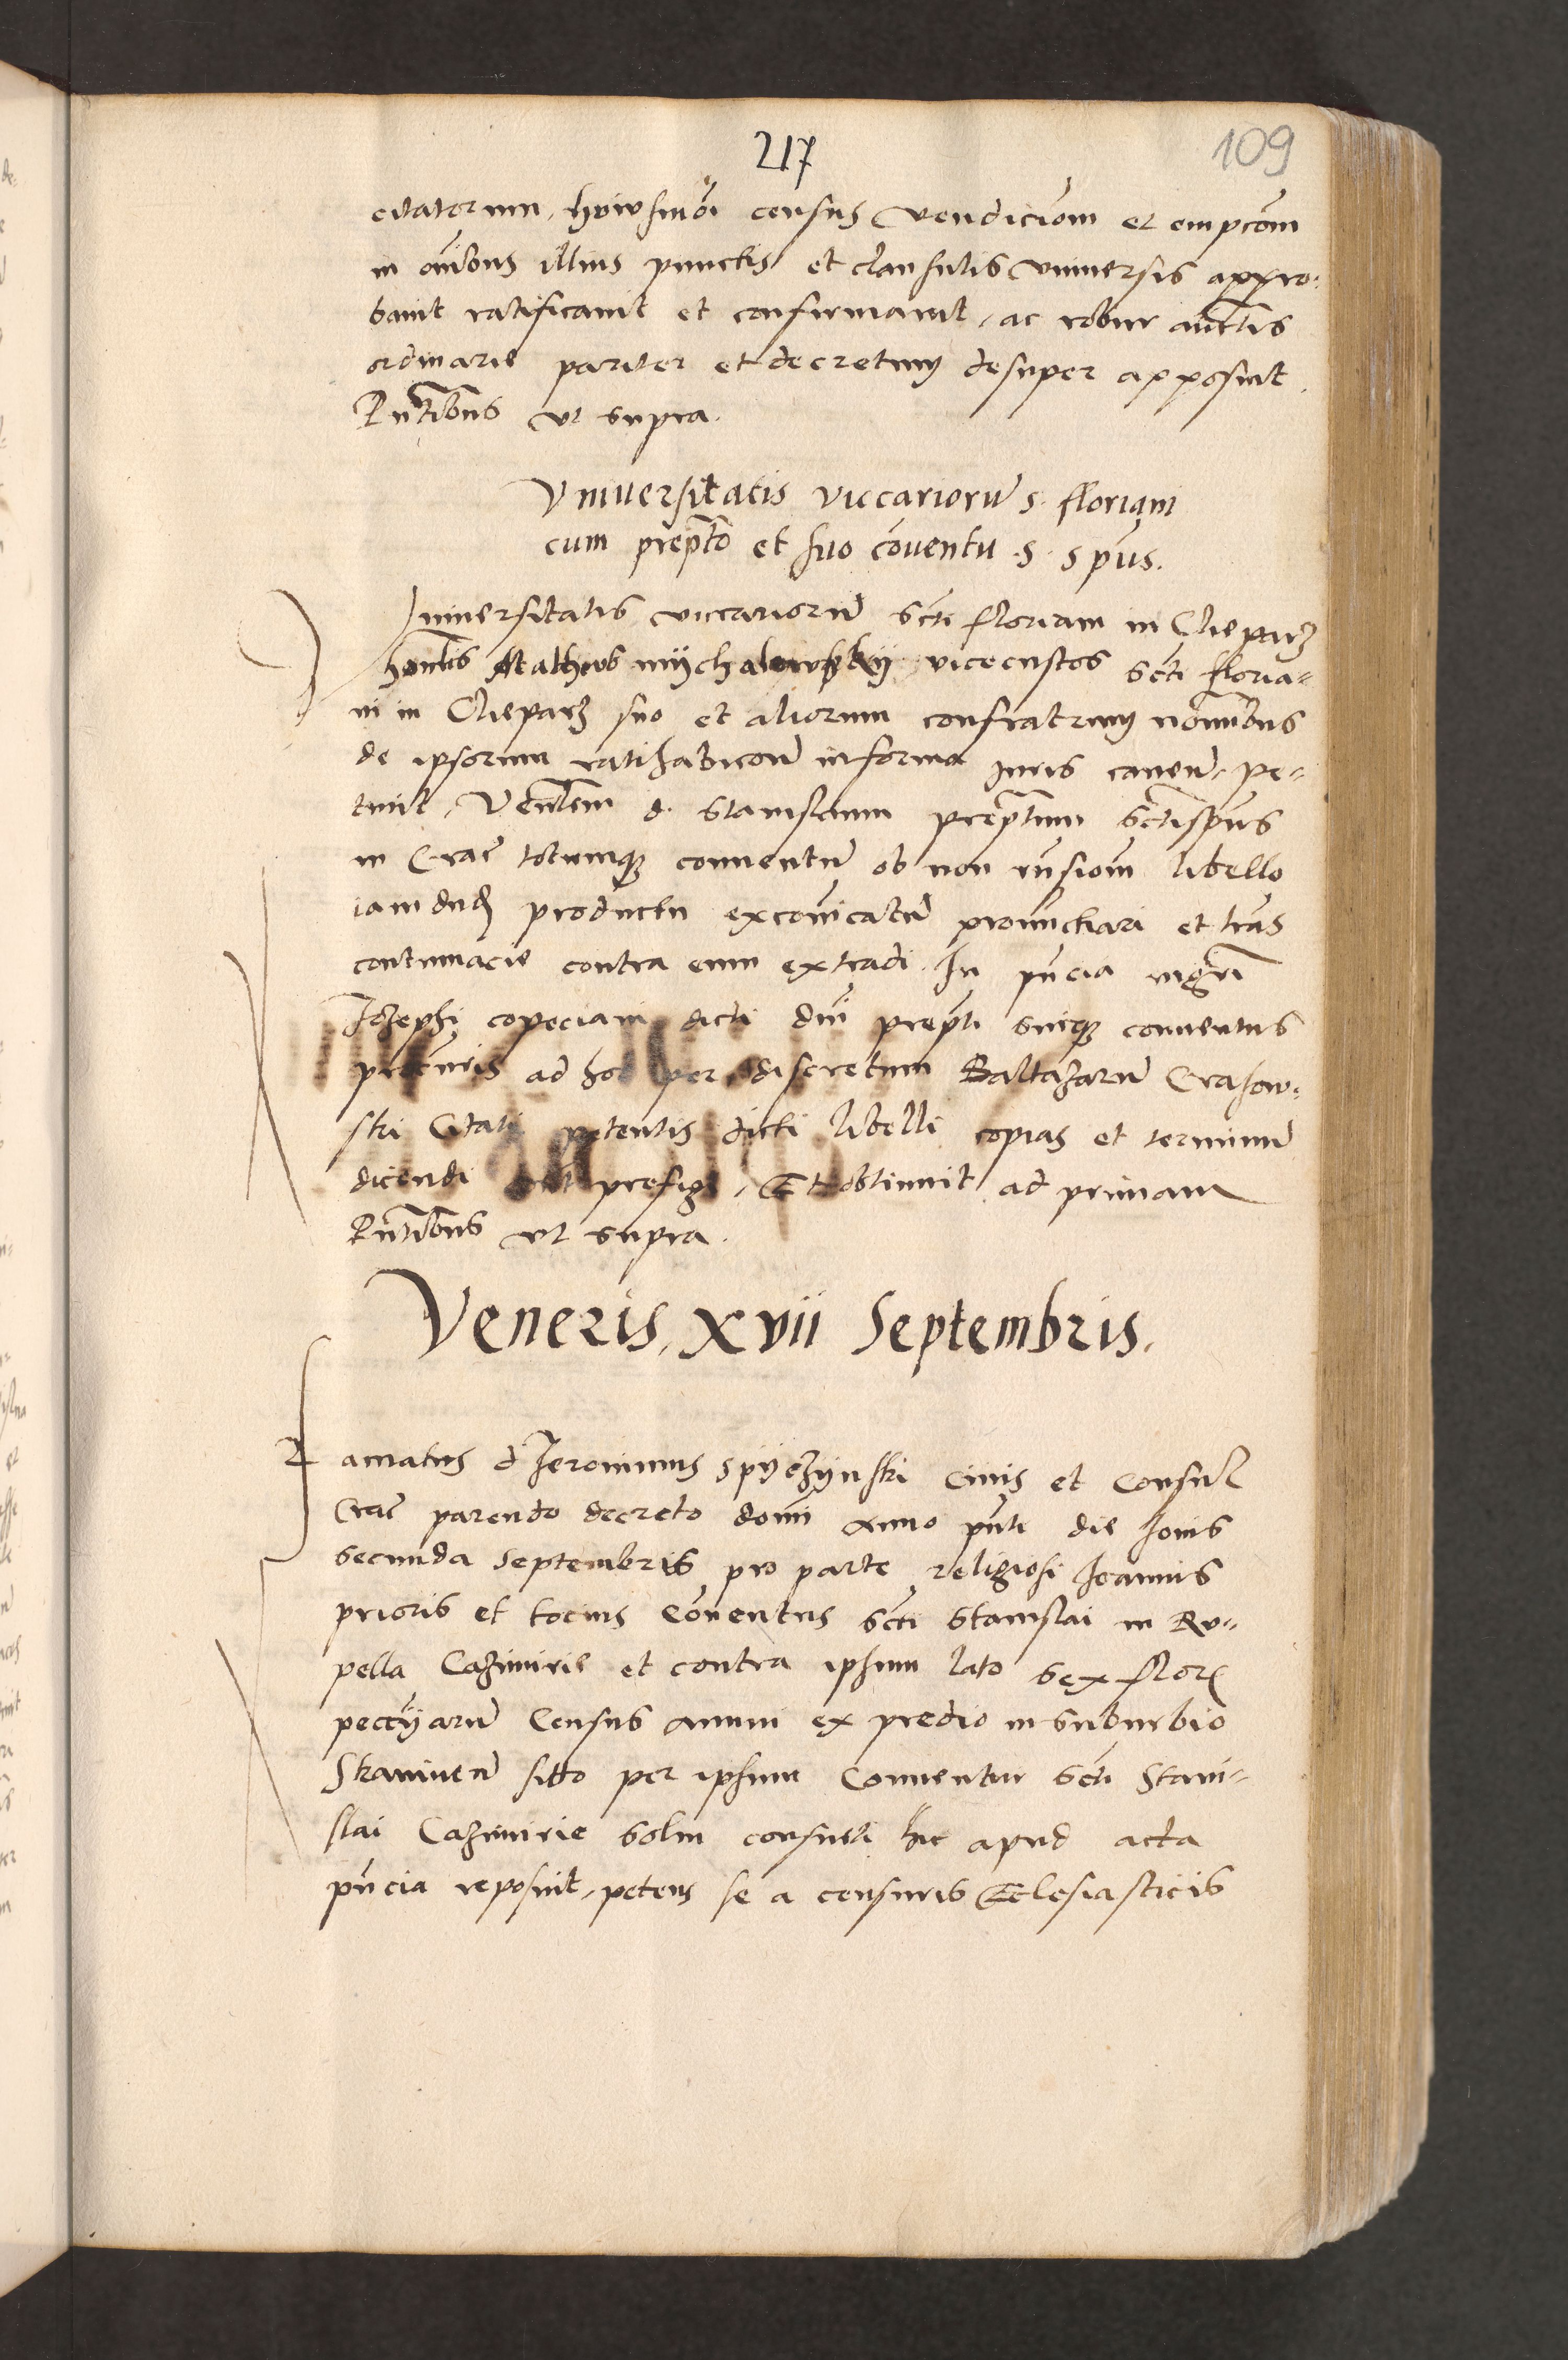 217
109
citatorum, huiusmōi census vendiciōm et empcōm
in om̄ibus illius punctis et clausulis vniuersis appro-
bauit ratificauit et confirmauit, ac robur auct̄tis
ordinarie pariter et decretum desuper apposuit.
Pn̄tibus vt supra.
Vniuersitatis viccariorū s. floriani
cum prep̄to et suo cōuentu .s. sp̄us.
Vniuersitatis viccariorū sc̄ti floriani in Clepar&
hon̄lis Matheus mÿchalowskÿ vicecustos sc̄ti floria-
ni in Clepar& suo et aliorum confratrum nōminibus
de ipsorum ratihabicōne in forma Iuris cauen. pe-
tiuit, Ven̄lem d. Stanislaum prep̄tum sc̄tisp̄us
in Crac̄ totumq& conuentū ob non rn̄siōm libello
iamdud& productu excōmicatū pronūctiari et lr̄as
contumacie contra eum extradi. In pn̄cia mgr̄i
Iozephi copeciani dicti dn̄i prep̄ti suiq& conuentus
procūris ad hoc per discretum Baltazarū Crasow-
ski Citati petentis dicti libelli copias et terminū
dicendi prefigi, Et obtinuit ad primam
Pn̄tibus vt supra.
Veneris, xvii Septembris.
Famatus d Ieronimus spÿczÿnski Ciuis et Consul
Crac̄ parendo decreto domī anno pn̄ti die Iouis
secunda Septembris pro parte religiosi Ioannis
prioris et tocius Cōuentus sc̄ti Stanislai in Ru-
pella Cazimirie et contra ipsum lato sex flor&
peccÿarū Census annui ex predio in suburbio
Skawinen̄ sitto per ipsum Conuentui sc̄ti Stani-
slai Cazimirie solui consueti hic apud acta
pn̄cia reposuit, petens se a censuris Ecclesiasticis